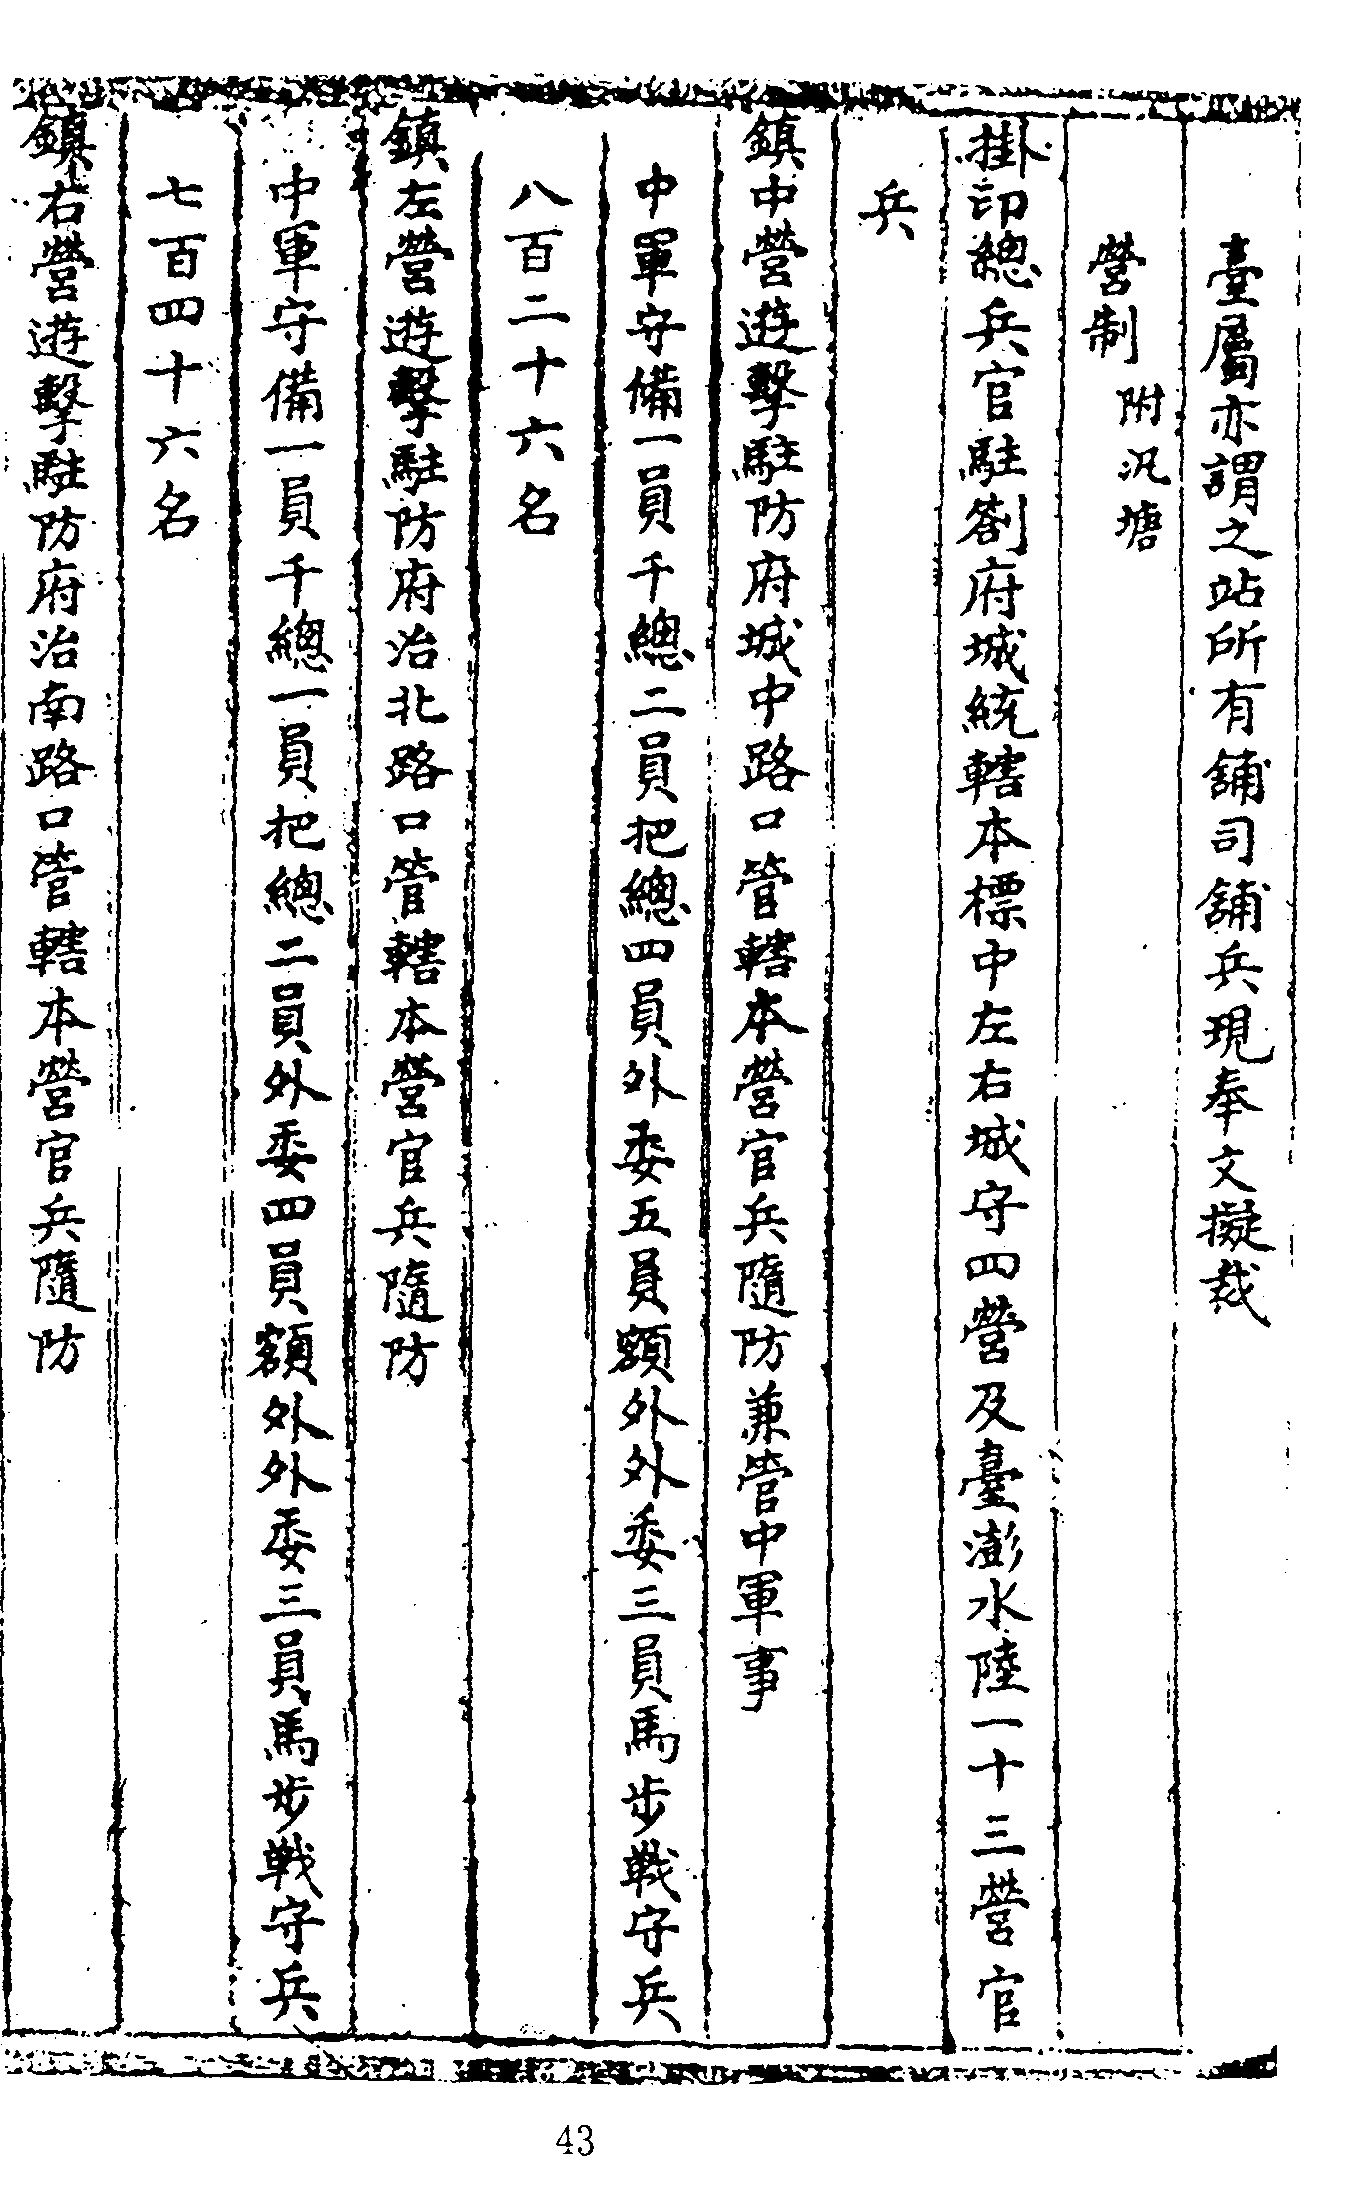 臺屬亦謂之站所有舖司舖兵現奉文擬裁
營制 附汛塘
掛印總兵官駐劄府城統轄本標中左右城守四營及臺澎水陸一十三營官
兵
鎮中營遊擊駐防府城中路口管轄本營官兵隨防兼管中軍事
中軍守備一員千總二員把總四員外委五員額外外委三員馬步戰守兵
八百二十六名
鎮左營遊擊駐防府治北路口管轄本營官兵隨防
中軍守備一員千總一員把總二員外委四員額外外委三員馬步戰守兵
七百四十六名
鎮右營遊擊駐防府治南路口管轄本營官兵隨防
43